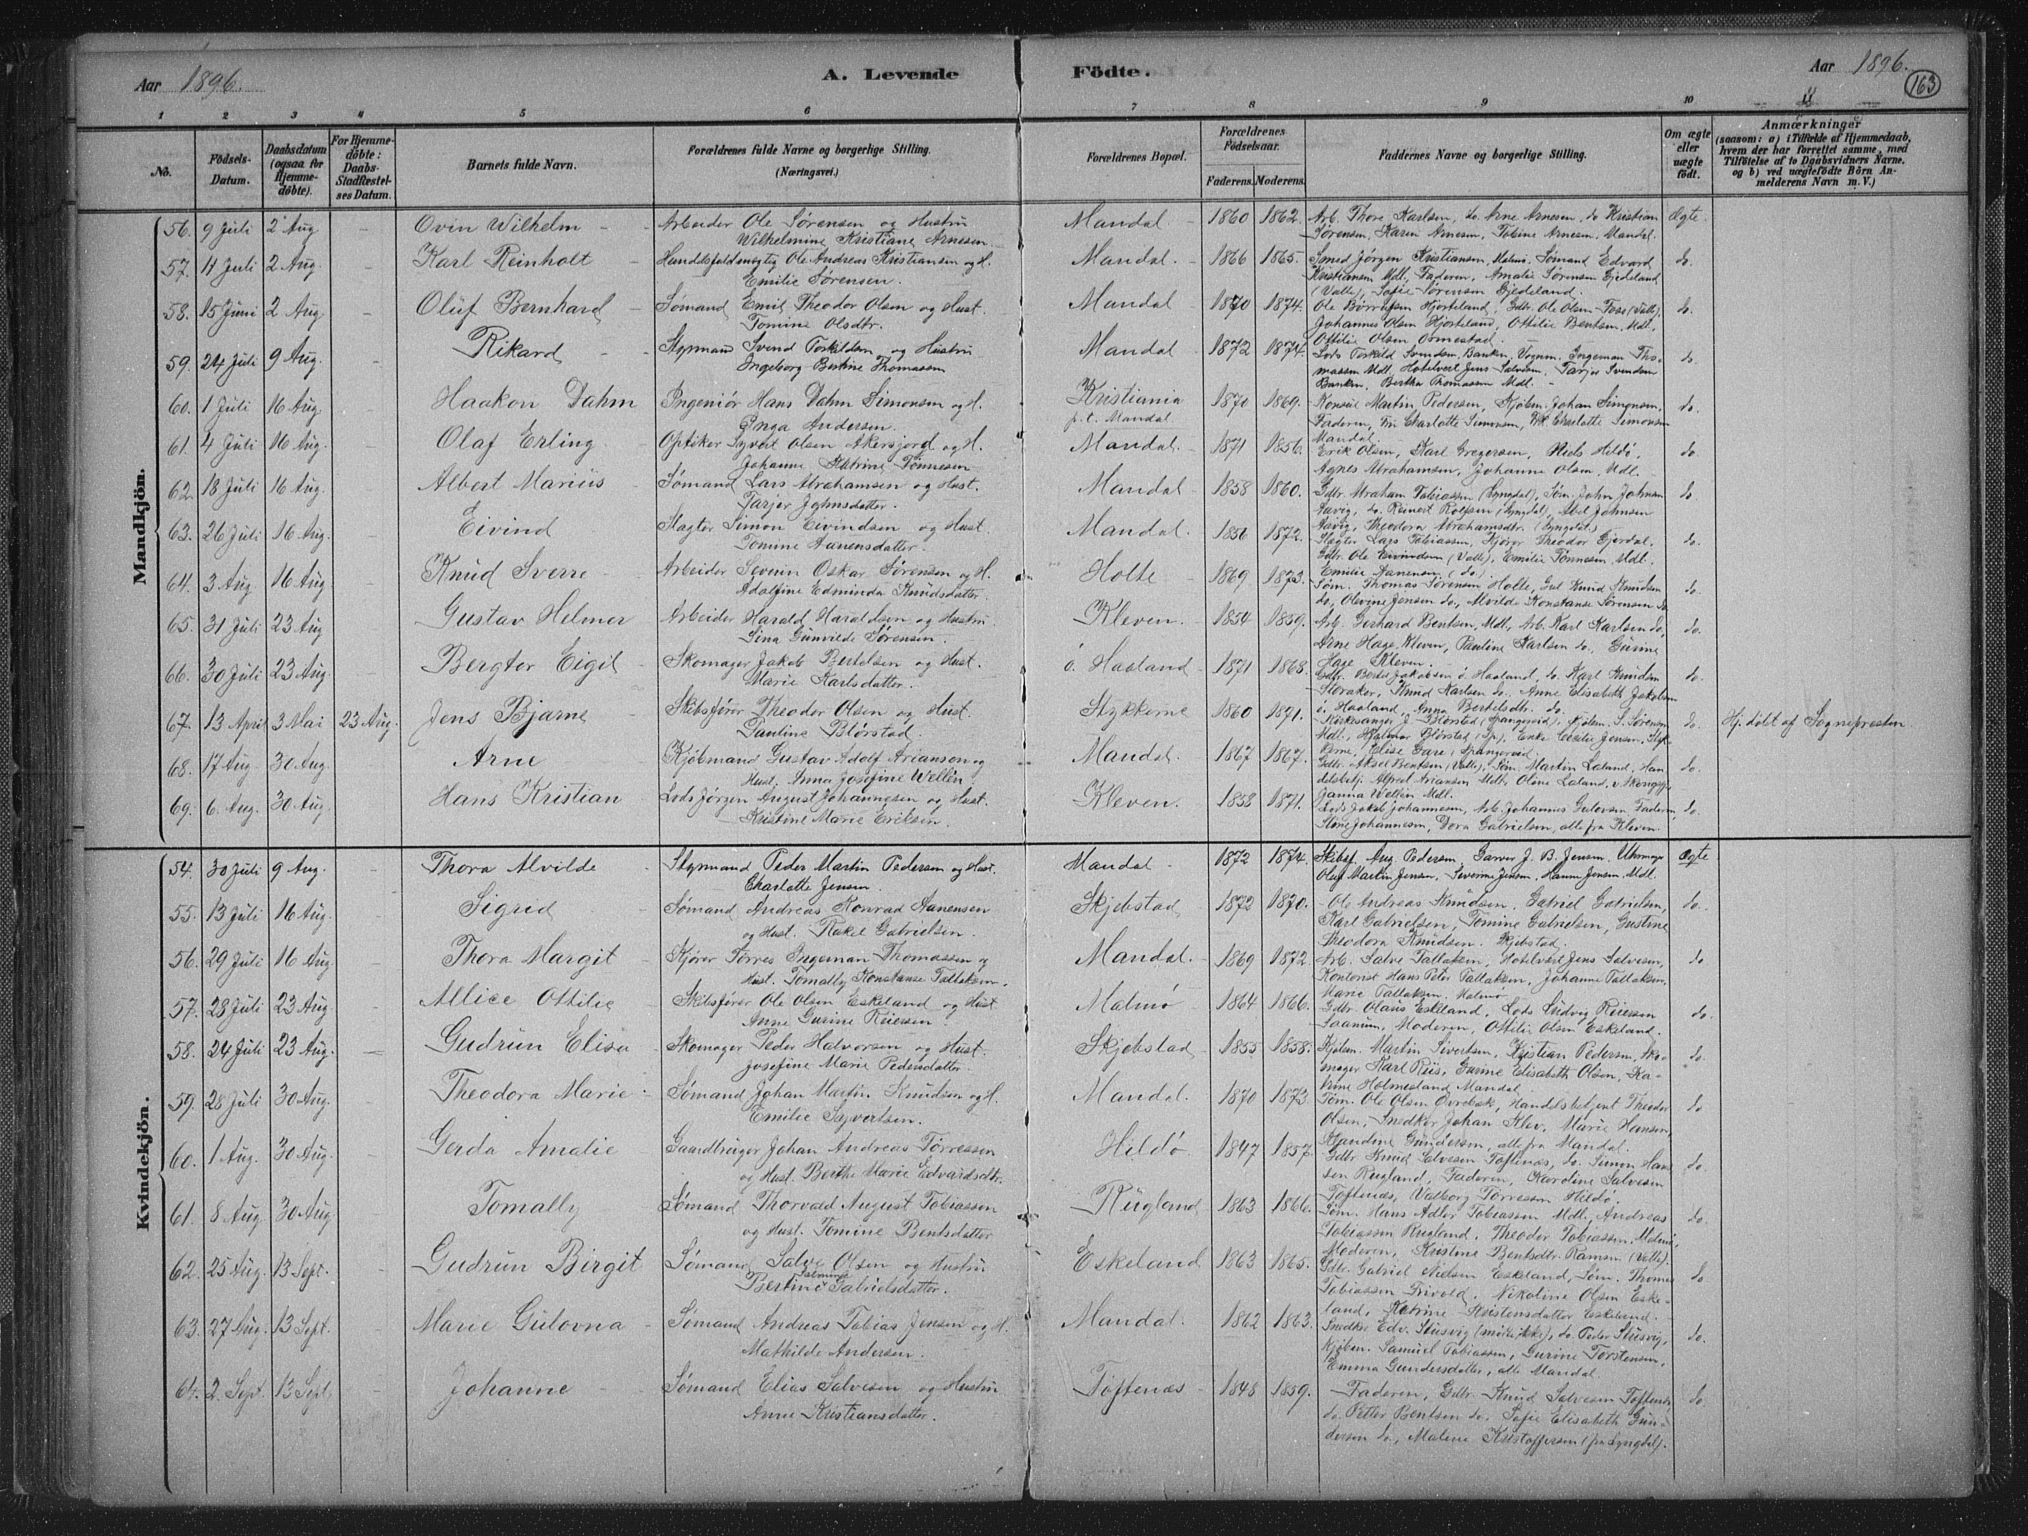 Aar 1896. A. Levende Födte. Aar 1896. 163
1 2 3 4 5 6 7 8 9 10 11
No. Födsels-Datum. Daabsdatum (ogsaa for Hjemmedöbte). For Hjemmedöbte: Daabs-Stadfæstelses Datum. Barnets fulde Navn. Forældrenes fulde Navne og borgerlige Stilling. (Næringsvei.) Forældrenes Bopæl. Forældrenes Födselsaar. Faderens. Moderens. Faddernes Navne og borgerlige Stilling. Om ægte eller uægte födt. Anmærkninger (saasom: a) i Tilfælde af Hjemmedaab, hvem der har forrettet samme, med Tilföielse af to Daabsvidners Navne, og b) ved uægtefödte Börn Anmelderens Navn m. V.)
Mandkjön.
56. 9 Juli 2 Aug. Ovin Wilhelm Arbeider Ole Sørensen og Hustru Mandal 1860 1862. Arb. Thore Karlsen, do. Arne Arnesen, do Kristian Ægte
Wilhelmine Kristiane Arnesen. Sørensen, Karen Arnesen, Tobine Arnesen, Mandal.
57. 11 Juli 2 Aug. Karl Reinholt Handelsfuldmægtig Ole Andreas Kristiansen og H. Mandal. 1866 1865. Smed Jörgen Kristiansen, Malmö. Sømand Edvard do.
Emilie Sørensen. Kristiansen Mdl, Faderen, Amalie Sørensen Gjedeland
(Valle), Sofie Sørensen Gjedeland.
58. 15 Juni 2 Aug. Oluf Bernhard Sømand Emil Theodor Olsen og Hust. Mandal 1870 1874. Ole Børrufsen Hjorteland, Gdbr. Ole Olsen Foss (Valle), do.
Tomine Olsdtr. Johannes Olsen Hjorteland, Ottilie Bentsen, Mdl,
Ottilie Olsen Ormestad.
59. 24 Juli 9 Aug. Rikard Styrmand Svend Torkildsen og Hustru Mandal 1872 1874. Lods Torkild Svendsen, Banken, Vognm. Ingeman Tho- do.
Ingeborg Bertine Thomassen massen Mdl. Hotelvert Jens Salvesen, Tarjer Svendsen
Banken, Bertha Thomassen Mdl.
60. 1 Juli 16 Aug. Haakon Dahm Ingeniör Hans Dahm Simonsen og H. Kristiania 1870 1869. Konsul Martin Pedersen, Kjöbm. Johan Simonsen, do.
Inga Andersen. p.t. Mandal Faderen, Fru Charlotte Simonsen, Frk. Charlotte Simonsen
Mandal.
61. 4 Juli 16 Aug. Olaf Erling Optiker Syvert Olsen Akersjord og H. Mandal. 1871 1856. Erik Olsen, Karl Gregersen, Niels Hildö, do.
Johanne Katrine Tønnesen Agnes Abrahamsen, Johanne Olsen, Mdl.
62. 18 Juli 16 Aug. Albert Marius Sømand Lars Abrahamsen og Hust. Mandal. 1858 1860. Gdbr. Abraham Tobiassen (Lyngdal), Søm. John Johnsen do.
Tarjer Johnsdatter. Aavig, do. Reinert Rolfsen (Lyngdal), Abel Johnsen
Aavig, Theodora Abrahamsdtr. (Lyngdal.)
63. 26 Juli 16 Aug. Eivind Slagter Simon Eivindsen og Hust. Mandal. 1850 1872. Slagter Lars Tobiassen, Kjörer Theodor Gjerdal, do.
Tomine Aanensdatter. Gdbr. Ole Eivindsen (Valle), Emilie Tønnesen Mdl.
Emilie Aanensen (do.)
64. 3 Aug 16 Aug. Knud Sverre Arbeider Severin Oskar Sørensen og H. Holte 1869 1873. Søm. Thomas Sørensen, Holte, Gul. Knud Knudsen do.
Adolfine Edminda Knudsdatter. do, Olevine Jensen do, Alvilde Konstanse Sørensen do.
65. 31 Juli 23 Aug Gustav Helmer Arbeider Harald Haraldsen og Hustru Kleven. 1854 1859. Arb. Gerhard Bentsen Mdl, Arb. Karl Karlsen do, do.
Sina Gunvilde Sørensen. Arne Hage Kleven, Pauline Karlsen do, Gunne
Hage Kleven.
66. 30 Juli 23 Aug. Bergtor Eigil Skomager Jakob Bertelsen og Hust. ö. Haaland 1871 1868. Gdbr. Bertel Jakobsen ö. Haaland, do. Karl Knudsen do.
Marie Karlsdatter. Storaker, Knud Karlsen do, Anne Elisabeth Jakobsen
ö. Haaland, Anna Bertelsdtr. do.
67. 13 April 3 Mai 23 Aug. Jens Bjarne Skibsfører Theodor Olsen og Hust. Stykkerne 1860 1871. Kirkesanger J. Blørstad (Spangereid), Kjöbm. S. Sørensen do. Hj. döbt af Sognepresten
Pauline Blørstad. Mdl, Hjalmar Blørstad (Sp.), Enke Cecilie Jensen, Styk-
kerne, Elise Gare, Spangereid.
68. 17 Aug. 30 Aug. Arne Kjöbmand Gustav Adolf Ariansen og Mandal 1867 1867. Gdbr. Aksel Bentsen (Valle), Søm. Martin Laland, Han- do.
Hust. Anna Josefine Wellen delsbetj. Alfred Ariansen Mdl, Oline Laland, v. Skongsj.
Janna Wellen Mdl.
69. 6. Aug. 30 Aug. Hans Kristian Lods Jörgen August Johannesen og Hust. Kleven. 1858 1871. Lods Jakob Johannesen, Arb. Johannes Gulovsen, Faderen, do.
Kristine Marie Eriksen. Stine Johannesen, Dora Gabrielsen, alle fra Kleven.
Kvindekjön.
54. 30 Juli 9 Aug. Thora Alvilde Styrmand Peder Martin Pedersen og Hust. Mandal 1872 1874. Skibsf. Aug. Pedersen, Garver J. B. Jensen, Uhrmager Ægte
Charlotte Jensen. Oluf Martin Jensen, Severine Jensen, Hanne Jensen Mdl.
55. 13 Juli 16 Aug. Sigrid Sømand Andreas Konrad Aanensen Skjebstad 1872 1870. Ole Andreas Knudsen, Gabriel Gabrielsen, do.
og Hust. Rakel Gabrielsen. Karl Gabrielsen, Tomine Gabrielsen, Gustine
Theodora Knudsen. Skjebstad.
56. 29 Juli 16 Aug. Thora Margit Kjörer Torres Ingeman Thomassen og Mandal. 1869 1872 Arb. Salve Tallaksen, Hotelvert Jens Salvesen, do
Hust. Tomally Konstanse Tallaksen. Kontorist Hans Peter Tallaksen, Johanne Tallaksen,
Marie Tallaksen. Malmö.
57. 28 Juli 23 Aug. Allice Ottilie Skibsförer Ole Olsen Eskeland og Hust Malmö 1864 1866. Gdbr. Olaus Eskeland, Lods Ludvig Reiersen do.
Anne Gurine Reiersen. Saanum, Moderen, Ottilie Olsen Eskeland.
58. 24 Juli 23 Aug. Gudrun Elisa Skomager Peder Halvorsen og Hust. Skjebstad 1855 1858. Kjöbm. Martin Sivertsen, Kristian Pedersen, Sko- do.
Josefine Marie Pedersdatter. mager Karl Riis, Gurine Elisabeth Olsen, Ka-
trine Holmesland Mandal
59. 28 Juli 30 Aug. Theodora Marie Sømand Johan Martin Knudsen og H. Mandal. 1870 1873 Tøm. Ole Olsen Övrebök, Handelsbetjent Theodor do
Emilie Syvertsen. Olsen, Snedker Johan Klev, Marie Hansen,
Mandine Gundersen, alle fra Mandal.
60. 1 Aug. 30 Aug. Gerda Amalie Gaardbruger Johan Andreas Tørressen Hildö 1847 1857. Gdbr. Knud Salvesen Toftenæs, do. Simon Han- do.
og Hust. Berthe Marie Edvardsdtr. sen Rugland, Faderen, Karoline Salvesen
Toftenæs, Valborg Tørressen Hildö.
61. 8 Aug. 30 Aug. Tomally Sømand Thorvald August Tobiassen Rugland 1863 1866. Søm. Hans Adler Tobiassen Mdl, Andreas do.
og Hust. Tomine Bentsdatter Tobiassen Rugland, Theodor Tobiassen, Malmö,
Moderen, Kristine Bentsdtr. Ramsen (Valle).
62. 25 Aug. 13 Sept. Gudrun Birgit Sømand Salve Olsen og Hustru Eskeland 1863 1865. Gdbr. Gabriel Nielsen Eskeland, Søm. Thomas do
Bertine Salmine Gabrielsdatter. Tobiassen Frivold. Nikoline Olsen Eske-
land, Katrine Kristensdatter Eskeland.
63. 27 Aug. 13 Sept. Marie Gulovna Sømand Andreas Tobias Jensen og H. Mandal. 1862 1863. Snedker Edv. Stusvig (mødte ikke), do. Peder Stusvig, do.
Mathilde Andersen. Kjöbm. Samuel Tobiassen, Gurine Torstensen,
Emma Gundersdatter, alle Mandal.
64. 2. Sept. 13 Sept. Johanne Sømand Elias Salvesen og Hustru Toftenæs 1848 1859. Faderen, Gdbr. Knud Salvesen Toftenæs, do.
Anne Kristiansdatter. do. Petter Bentsen do, Sofie Elisabeth Gun-
dersen do, Malene Kristoffersen (fra Lyngdal).